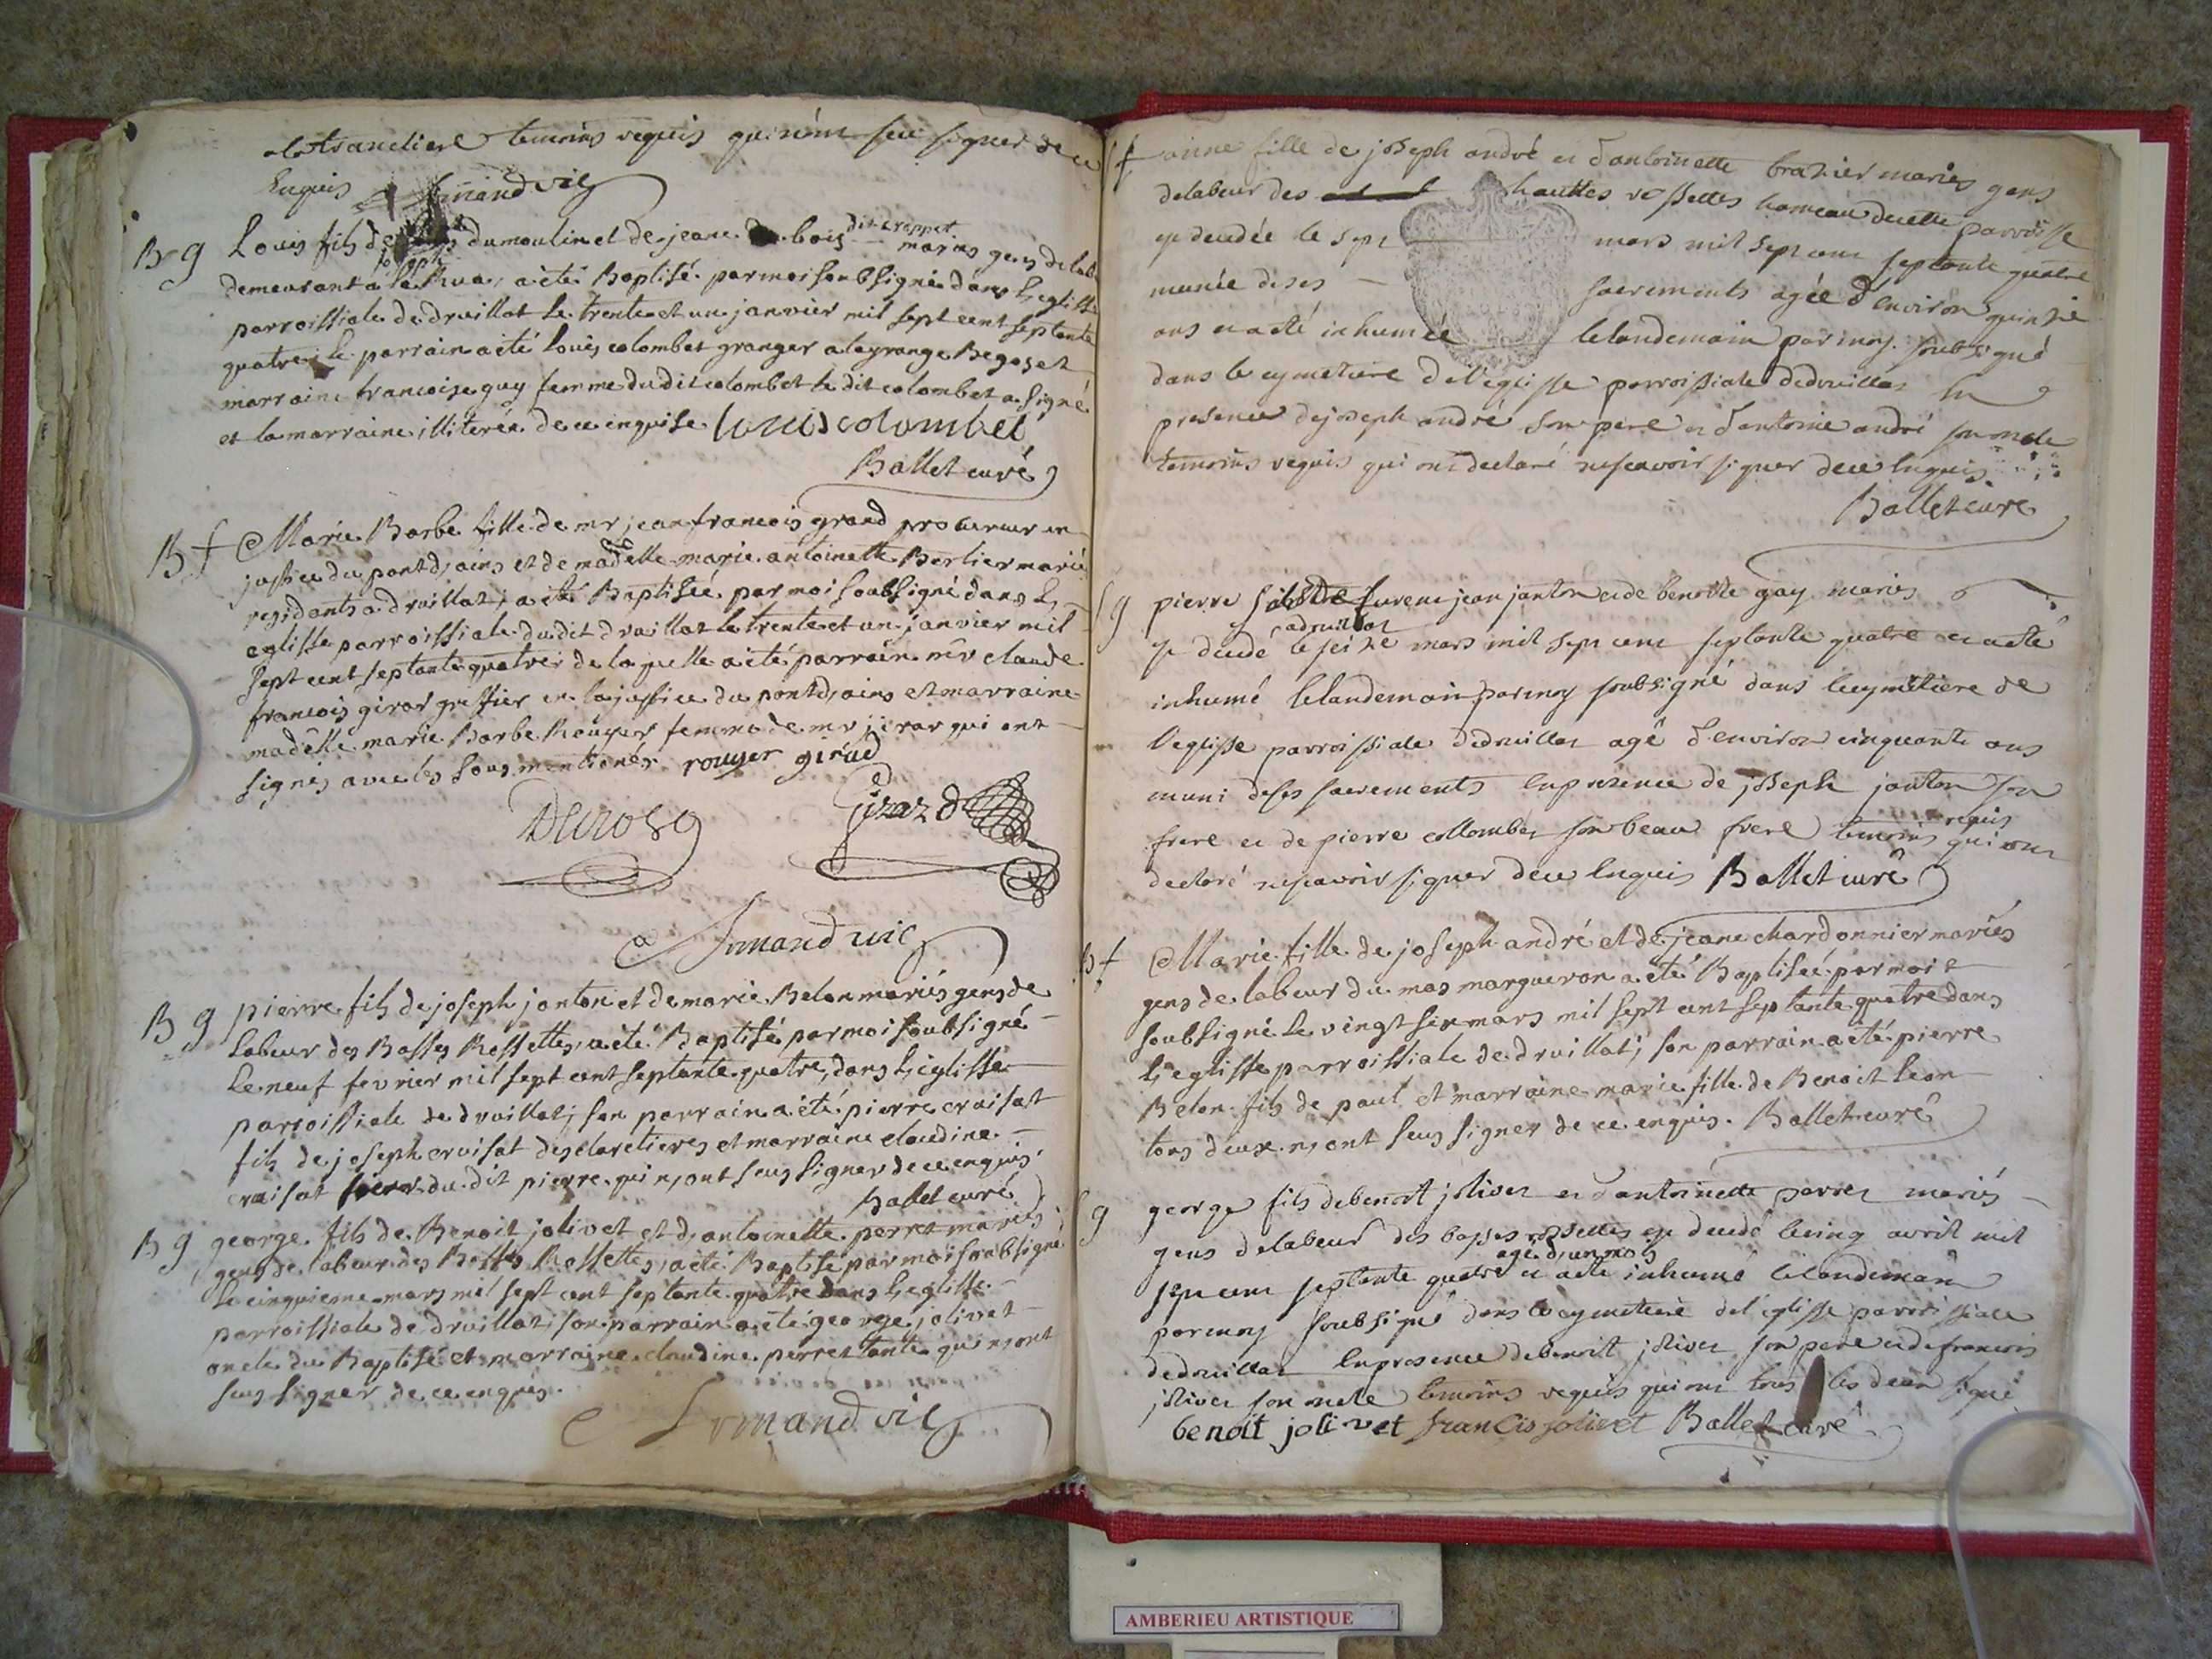 temoins requis qui n'ont sceu signer de ce
Enquis Armand vic
B g Louis fils de joseph dumoulin et de jeane du bois dit croppet mariés gens de lab
demeurant à la Rua, a été Baptisé par moi soubsigné dans l'eglisse
parroissiale de druillat le trente et un janvier mil sept cent septante
quatre; le parrain a été Louis colombet granger a la grange Begoz et
marraine francoise guy femme dudit colombet le dit colombet a signé
et la marraine illiterée de ce enquise louis colombet
Ballet curé
B f Marie Barbe fille de mr jean francois grand procureur en
justice du pont d'ains et de madelle marie antoinette Berlier mariés
residants a druillat, a été Baptisée par moi soubsigné dans l'
eglisse parroissiale dudit druillat le trente et un janvier mil
sept cent septante quatre; de laquelle a été parrain mr claude
francois girar greffier en la justice du pont d'ains et marraine
madelle marie Barbe Rouyer femme de mr jirar qui ont
signés avec les sous mentionés. rouyer girad
Derosg Girard
Armand vic
B g pierre fils de joseph janton et de marie Belon mariés gens de
Labeur des Basses Rossettes, a été Baptisé par moi soubsigné
le neuf fevrier mil sept cent septante quatre, dans l'eglisse
parroissiale de druillat; son parrain a été pierre croisat
fils de joseph croisat des claretieres et marraine claudine
croisat soeur du dit pierre qui n'ont seus signer de ce enquis.
Ballet curé
B g george fils de Benoit jolivet et d'antoinette perret mariés
gens de labeur des Basses Rossettes, a été Baptisé par moi soubsigné
le cinquieme mars mil sept cent septante quatre dans l'eglisse
parroissiale de druillat; son parrain a été george jolivet
oncle du Baptisé et marraine claudine perret tante qui n'ont
seus signer de ce enquis.
Armand vic
S f anne fille de joseph andré et d'antoinette brazier mariés gens
delabeur des hauttes rossettes hameau decette parroisse
est decedée le sept mars mil sept cent septante quatre
munie de ses sacrements agée d'environ quinze
ans et a eté inhumée lelandemain parmoy soubsigné
dans le cymetiere de l'eglisse parroissiale dedruillat En
presence dejoseph andré son pere et d'antoine andré son oncle
temoins requis qui ont declaré nescavoir signer dece Enquis
Ballet curé
S g pierre fils de furent jean janton et de benoitte gay mariés
est decedé a druillat le seize mars mil sept cent septante quatre et a eté
inhumé lelandemain parmoy soubsigné dans lecymetiere de
l'eglisse parroissiale dedruillat agé d'environ cinquante ans
muni deses sacrements enpresence de joseph janton son
frere et de pierre collombet son beau frere temoins requis qui ont
declaré nescavoir signer dece Enquis Ballet curé
B f Marie fille de joseph andré et de jeane chardonnier mariés
gens de labeur du mas margueron a été Baptisée par moi
soubsigné le vingt six mars mil sept cent septante quatre dans
l'eglisse parroissiale de druillat; son parrain a été pierre
Belon fils de paul et marraine marie fille de Benoit leon
tous deux n'ont seus signer de ce enquis. Ballet curé
S g george fils debenoit jolivet et d'antoinette perret mariés
gens delabeur des basses rossettes est decedé lecinq avril mil
sept cent septante quatre agé d'un mois et a eté inhumé lelandemain
parmoy soubsigné dans lecymetiere de l'eglisse parroissiale
dedruillat Enpresence debenoit jolivet son pere et defrancois
jolivet son oncle temoins requis qui ont tous les deux signé
benoit jolivet francois jolivet Ballet curé
AMBERIEU ARTISTIQUE